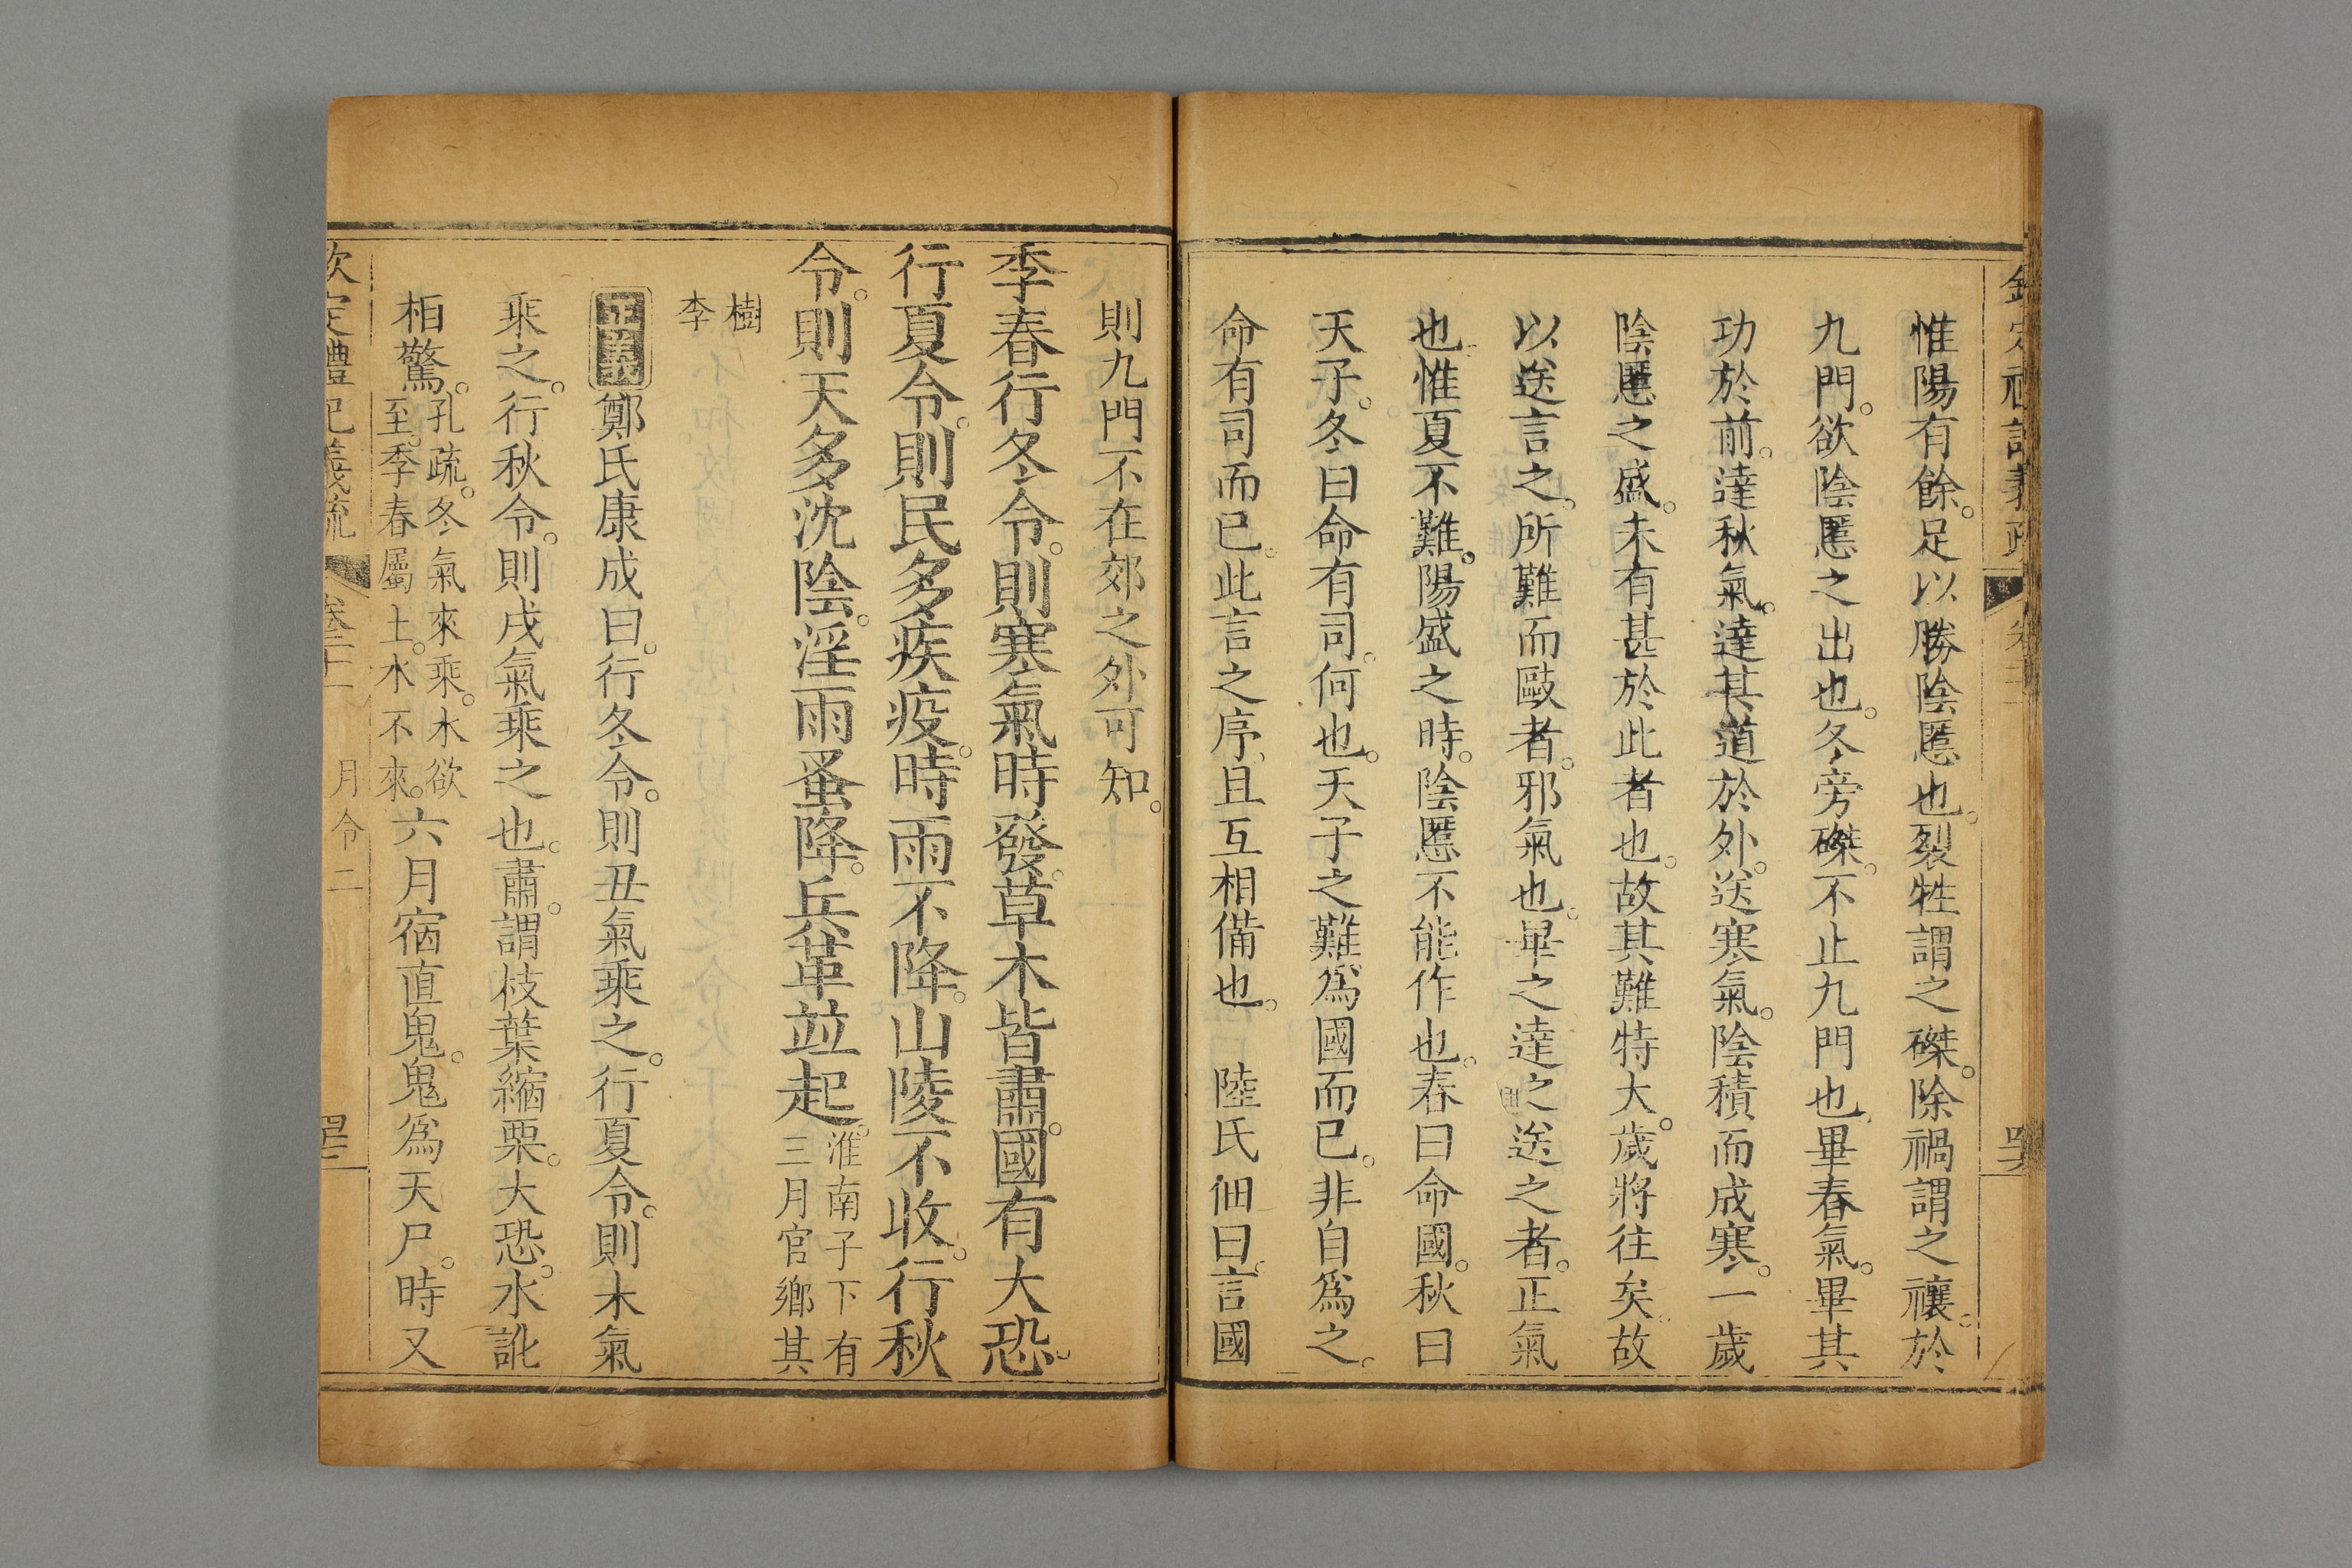 惟陽有餘。足以勝陰慝也。裂牲謂之磔。除禍謂之禳。於
九門。欲陰慝之出也。冬旁磔。不止九門也。畢春氣。畢其
功於前。達秋氣。達其道於外。送寒氣。陰積而成寒。一歲
陰慝之盛。未有甚於此者也。故其難特大。歲將往矣。故
以送言之。所難而敺者。邪氣也。畢之達之送之者。正氣
也。惟夏不難。陽盛之時。陰慝不能作也。春曰命國。秋曰
天子。冬曰命有司。何也。天子之難。爲國而已。非自爲之。
命有司而已。此言之序。且互相備也。　陸氏佃曰。言國
則九門不在郊之外可知。
季春行冬令。則寒氣時發。草木皆肅。國有大恐。
行夏令。則民多疾疫。時雨不降。山陵不收。行秋
令。則天多沈陰。淫雨蚤降。兵革並起。淮南子下有
三月官鄉其
樹
李
正義 鄭氏康成曰。行冬令。則丑氣乘之。行夏令。則未氣
乘之。行秋令。則戌氣乘之也。肅。謂枝葉縮栗。大恐。水訛
相驚。孔疏。冬氣來乘。水欲
至。季春屬土。水不來。六月宿直鬼。鬼爲天尸。時又
欽定禮記義疏 卷二十一 月令二